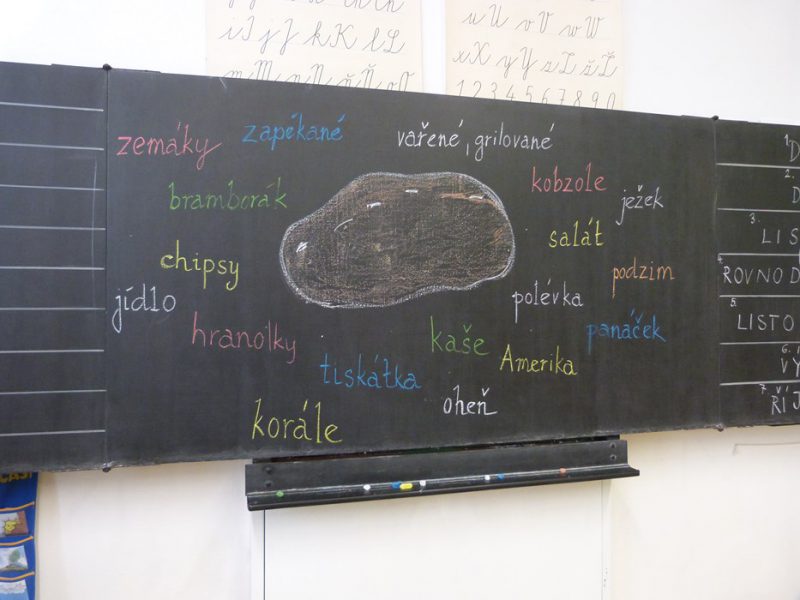 iI jJ kK lL
uU vV wW
xX yY zZ žŽ
1 2 3 4 5 6 7 8 9 0
zemáky
zapékané
vařené, grilované
kobzole
ježek
bramborák
salát
chipsy
podzim
jídlo
polévka
hranolky
kaše
panáček
tiskátka
Amerika
oheň
korále
1. D
2. D
3. LIS
4. ROVNOD
5. LISTO
6.
VY
7. ŘÍJ